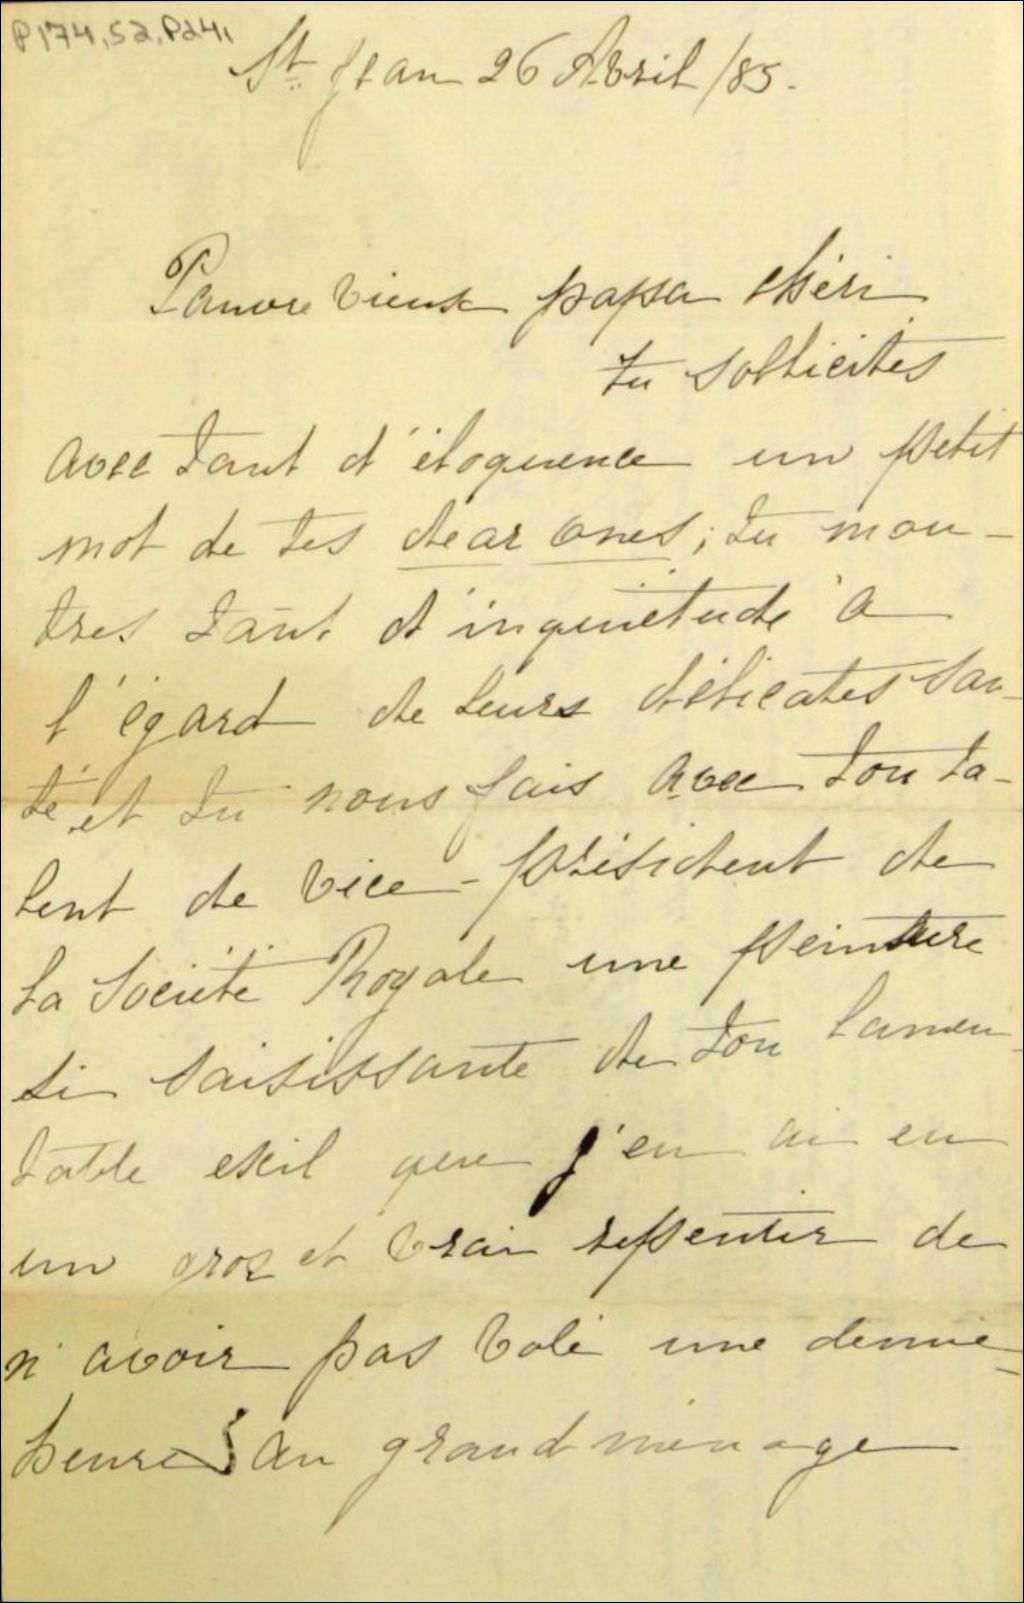 P174,S2,P241
St. Jean 26 Avril /85.
Pauvre vieux papa chéri
tu sollicites
avec tant d'éloquence un petit
mot de tes dear ones; tu mon-
tres tant d'inquiétude à
l'égard de leurs délicates san-
té et tu nous fais avec ton ta-
lent de vice-président de
la Société Royale une peinture
si saisissante de ton lamen-
table exil que j'en ai eu
un gros et vrai repentir de
n'avoir pas volé une demie-
heure au grand ménage